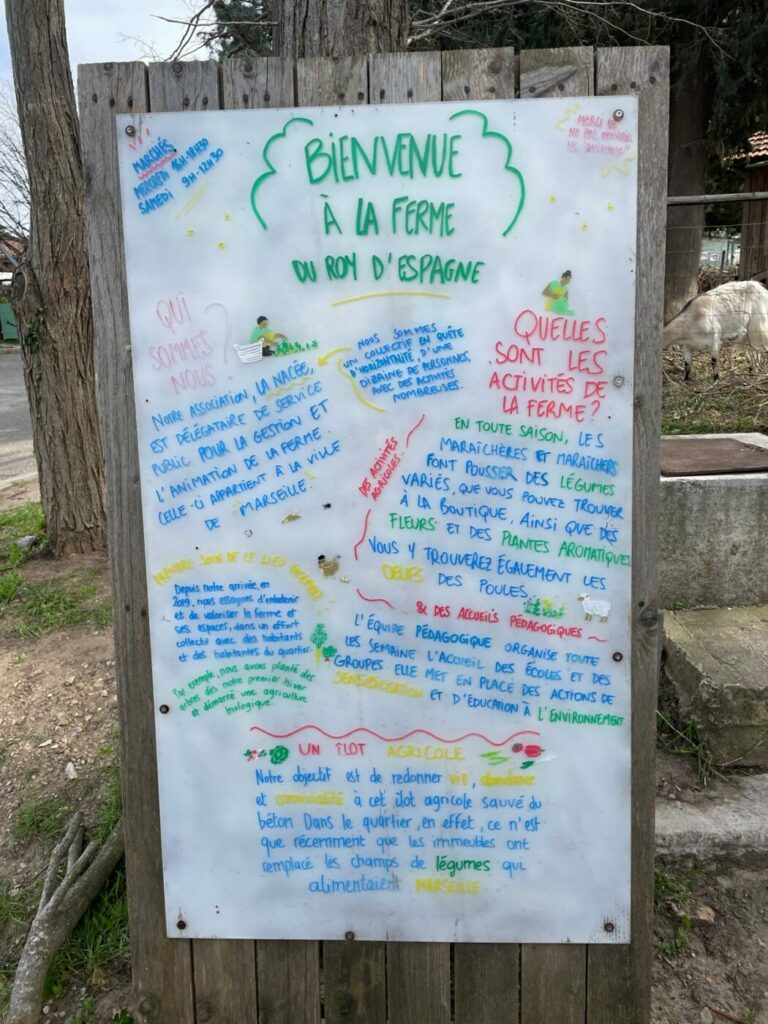 MARCHÉS
MERCREDI 16H-18H30
SAMEDI 9H-12H30
MERCI DE
NE PAS
LES ANIMAUX
BIENVENUE
À LA FERME
DU ROY D'ESPAGNE
QUI
SOMMES
NOUS ?
NOTRE ASSOCIATION, LA NACÉE,
EST DÉLÉGATAIRE DE SERVICE
PUBLIC POUR LA GESTION ET
L'ANIMATION DE LA FERME.
CELLE-CI APPARTIENT À LA VILLE
DE MARSEILLE.
NOUS SOMMES
UN COLLECTIF EN QUÊTE
D'HORIZONTALITÉ, D'UNE
DIZAINE DE PERSONNES,
AVEC DES ACTIVITÉS
NOMBREUSES.
QUELLES
SONT LES
ACTIVITÉS DE
LA FERME ?
DES ACTIVITÉS
AGRICOLES.
EN TOUTE SAISON, LES
MARAÎCHÈRES ET MARAÎCHERS
FONT POUSSER DES LÉGUMES
VARIÉS, QUE VOUS POUVEZ TROUVER
À LA BOUTIQUE, AINSI QUE DES
FLEURS ET DES PLANTES AROMATIQUES.
VOUS Y TROUVEREZ ÉGALEMENT LES
OEUFS DES POULES.
PRENDRE SOIN DE CE LIEU ENSEMBLE
Depuis notre arrivée, en
2019, nous essayons d'entretenir
et de valoriser la ferme et
ses espaces, dans un effort
collectif avec des habitants
et des habitantes du quartier.
Par exemple, nous avons planté des
arbres dès notre premier hiver
et démarré une agriculture
biologique.
& DES ACCUEILS PÉDAGOGIQUES
L'ÉQUIPE PÉDAGOGIQUE ORGANISE TOUTE
LES SEMAINE L'ACCUEIL DES ÉCOLES ET DES
GROUPES. ELLE MET EN PLACE DES ACTIONS DE
SENSIBILISATION ET D'ÉDUCATION À L'ENVIRONNEMENT
UN ÎLOT AGRICOLE
Notre objectif est de redonner vie, abondance
et convivialité à cet îlot agricole sauvé du
béton. Dans le quartier, en effet, ce n'est
que récemment que les immeubles ont
remplacé les champs de légumes qui
alimentaient MARSEILLE